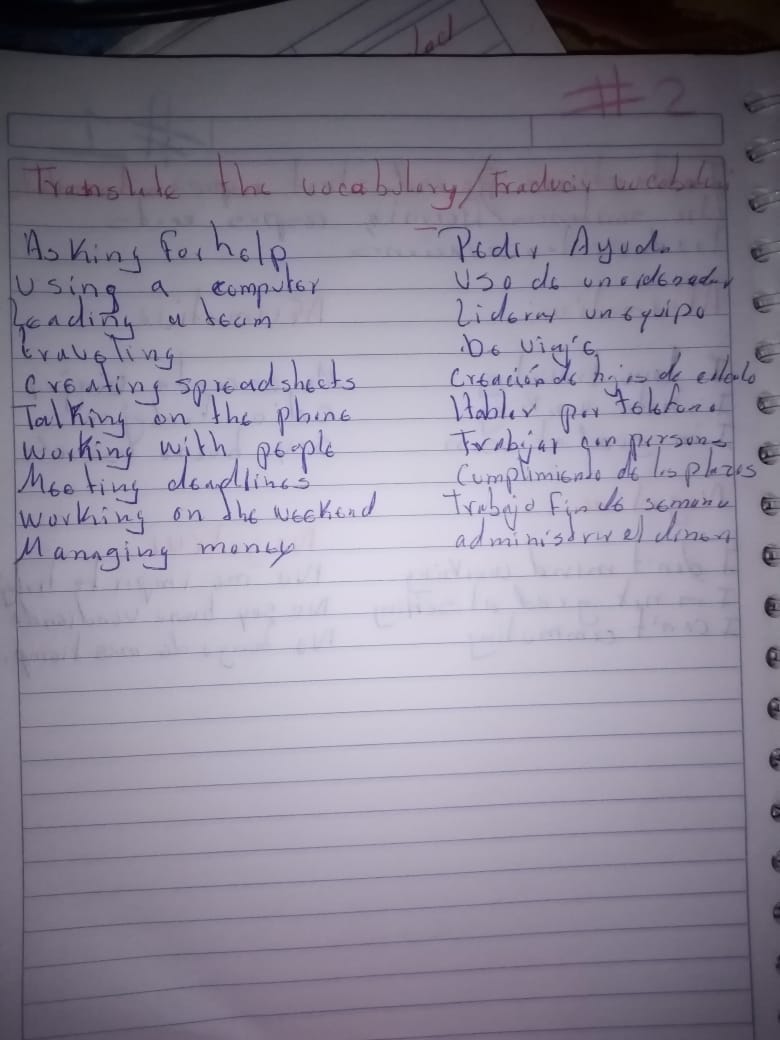 lad
#2
Translate the vocabulary / Traducir vocabula
Asking for help - Pedir Ayuda
Using a computer Uso de un ordenador
Leading a team Liderar un equipo
traveling De viaje
Creating spreadsheets Creación de hojas de cálculo
Talking on the phone Hablar por teléfono
Working with people Trabajar con persona
Meeting deadlines Cumplimiento de los plazos
Working on the weekend Trabajo fin de semana
Managing money administrar el dinero